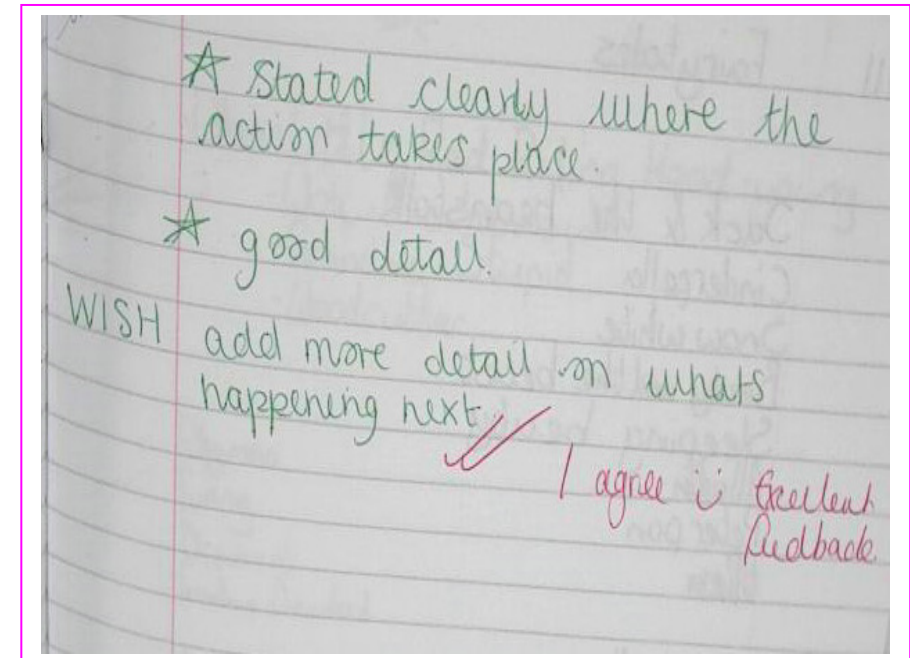 ☆ Stated clearly where the
action takes place.
☆ good detail.
WISH add more detail on whats
happening next
I agree :) Excellent
feedback